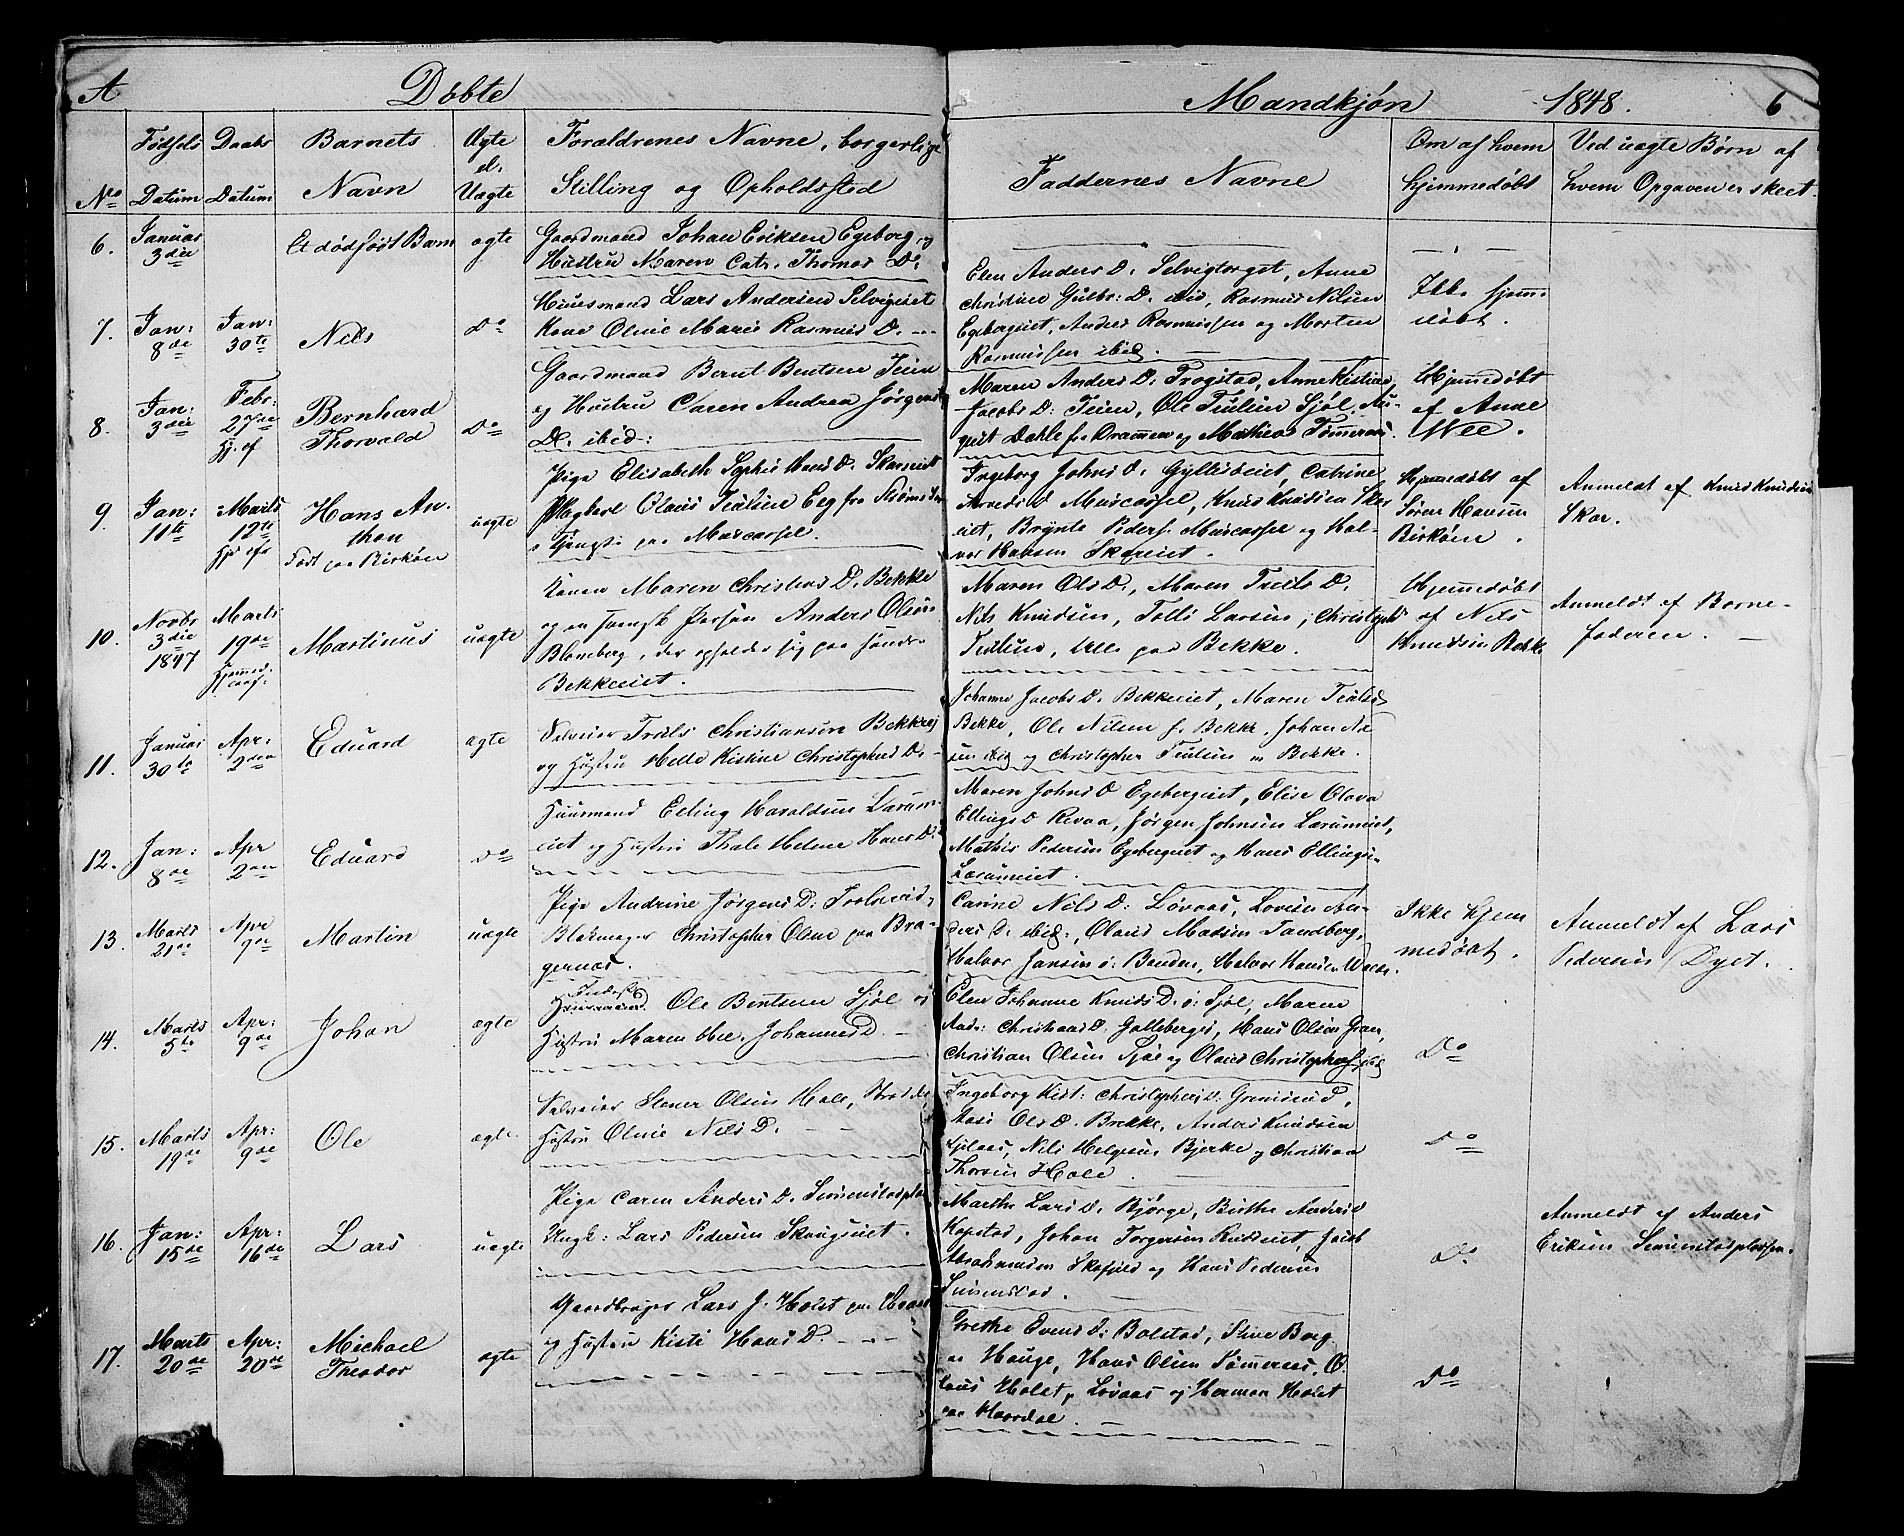 A Døbte Mandkjøn 1848. 6
No Fødsels Datum Daabs Datum Barnets Navn Ægte el. Uægte Forældrenes Navne, borgerlige Stilling og Opholdssted Faddernes Navne Om af hvem hjemmedøbt Ved uægte Børn af hvem Opgaven er skeet.
6. Januar 3die Et dødfødt Barn ægte Gaardmand Johan Eriksen Egeberg og
Hustru Maren Catr. Thomas D.
7. Jan: 8de Jan: 30te Nils Do Huusmand Lars Andersen Selvigeiet
Kone Oline Marie Rasmus D.
Elen Anders D. Selvigtorget, Anne
Christine Gulbr: D. ibid, Rasmus Nilsen
Egebergeiet, Anders Rasmussen og Morten
Rasmussen ibid.
Ikke hjemmedøbt.
8. Jan: 3die Febr: 27de Hj. af Bernhard Thorvald Do Gaardmand Bernt Bentsen Teien
og Hustru Caren Andrea Jørgens
D. ibid:
Maren Anders D. Trogstad, Anne Kistine
Jacobs D. Teien, Ole Trulsen Sjøl, August
Dahle fra Drammen og Mathias Tømmeraas.
Hjemedøbt
af Anne
Moe.
9. Jan: 11te Marts 12te Hans Anthon
Født paa Birkøen uægte Pige Elisabeth Sophie Hans D. Skareiet
Ungkarl Olaus Trulsen Eeg fra Strømsoe
i Tjeneste paa Muscorsel.
Ingeborg Johns D. Gylleseiet, Catrine
D Muscorsel, Knud Knudsen Skareiet,
Brynte Peders. Muscorsel og Halvor
Hansen Skareiet.
Hjemedøbt af
Søren Hansen
Birkøen.
Anmeldt af Knud Knudsen
Skar.
10. Novbr 3die 1847 Marts 19de Martinus uægte Konen Maren Christens D. Bekke
og en svensk Person Anders Olsen
Blomberg, der opholder sig paa Søndre
Bekkeeiet.
Maren Ols D., Maren Truls D.
Nils Knudsen, Tolle Larsen, Christoph
Trulsen, alle paa Bekke.
Hjemmedøbt
af Nils
Knudsen Bekke
Anmeldt af Barnefaderen.
11. Januar 30te Apr: 2den Eduard ægte Selveier Truls Christiansen Bekke
og Hustru Helle Kistine Christophers D.
Johanne Jacobs D. Bekkeeiet, Maren Truls D
Bekke, Ole Nilsen f. Bekke, Johan
ibid og Christopher Trulsen Bekke.
12. Jan: 8de Apr 2den Eduard Do Huusmand Elling Haraldsen Larumeiet
og Hustru Thale Helene Hans D.
Maren Johns D Egebergeiet, Elise Olava
Ellings D Revaa, Jørgen Johnsen Larumeiet,
Mathis Pedersen Egebergeiet og Hans Ellings.
Larumeiet.
13. Marts 21de Apr 9de Martin uægte Pige Andrine Jørgens D:
Christopher Olsen paa Bragernæs.
Carine Nils D: Løvaas, Lovise Anders
D. ibid:, Olaus Madsen Sandberg,
Halvor Jansen Banden, Halvor Hansen
Ikke hjemmedøbt.
Anmeldt af Lars
Pedersen Dyet.
14. Marts 5te Apr: 9de Johan ægte Inderst Ole Bentsen Sjøl og
Hustru Maren Johannes D.
Elen Johanne Knuds D. ø: Sjøl, Maren
Andr: Christians D. Galleberget, Hans Olsen Gran,
Christian Olsen Sjøl og Olaus Christophersen ibid
Do
15. Marts 19de Apr: 9de Ole ægte. Selveier Stener Olsen Hole,
Hustru Oline Nils D.
Ingeborg Kist: Christophers D. Grimsrud,
Aase Ols D. Brekke, Anders Knudsen
Nils Helgesen Bjerke og Christian
Thorsen Hole.
Do
16. Jan: 15de Apr: 16de Lars uægte Pige Caren Anders D. Simenstadpladsen
Ungk: Lars Pedersen Skougseiet.
Marthe Lars D. Bjørge, Birthe Anders D
Kopstad, Johan Torgersen Kudseiet, Jacob
Abrahamsen og Hans Pedersen
Simenstad.
Do
Anmeldt af Anders
Eriksen Simenstadpladsen.
17. Marts 20de Apr: 20de Michael Theodor ægte Gaardbruger Lars J. Holst paa
og Hustru Kisti Hans D.
Grethe Evens D: Bolstad, Berg
Hauge, Hans Olsen Tømmeraas,
Holst, Løvaas og Herman Holst
paa
Do